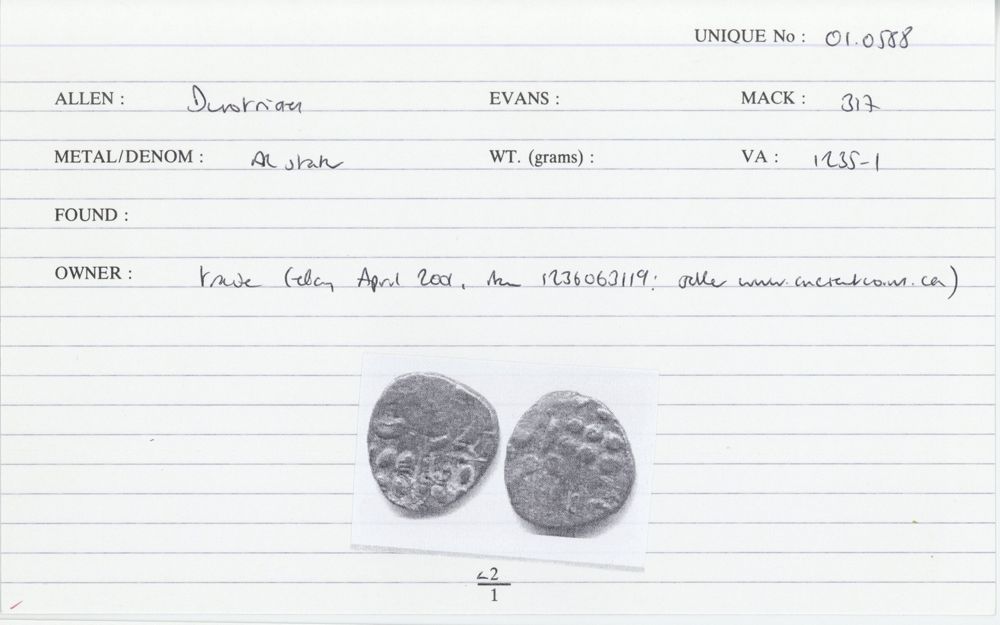 UNIQUE No : 01.0588
ALLEN : Durotrigan EVANS : MACK : 317
METAL/DENOM : AR stater WT. (grams) : VA : 1235-1
FOUND :
OWNER : trade (ebay April 2001, item 1236063119: seller www.ancientcoins.ca)
<2
1